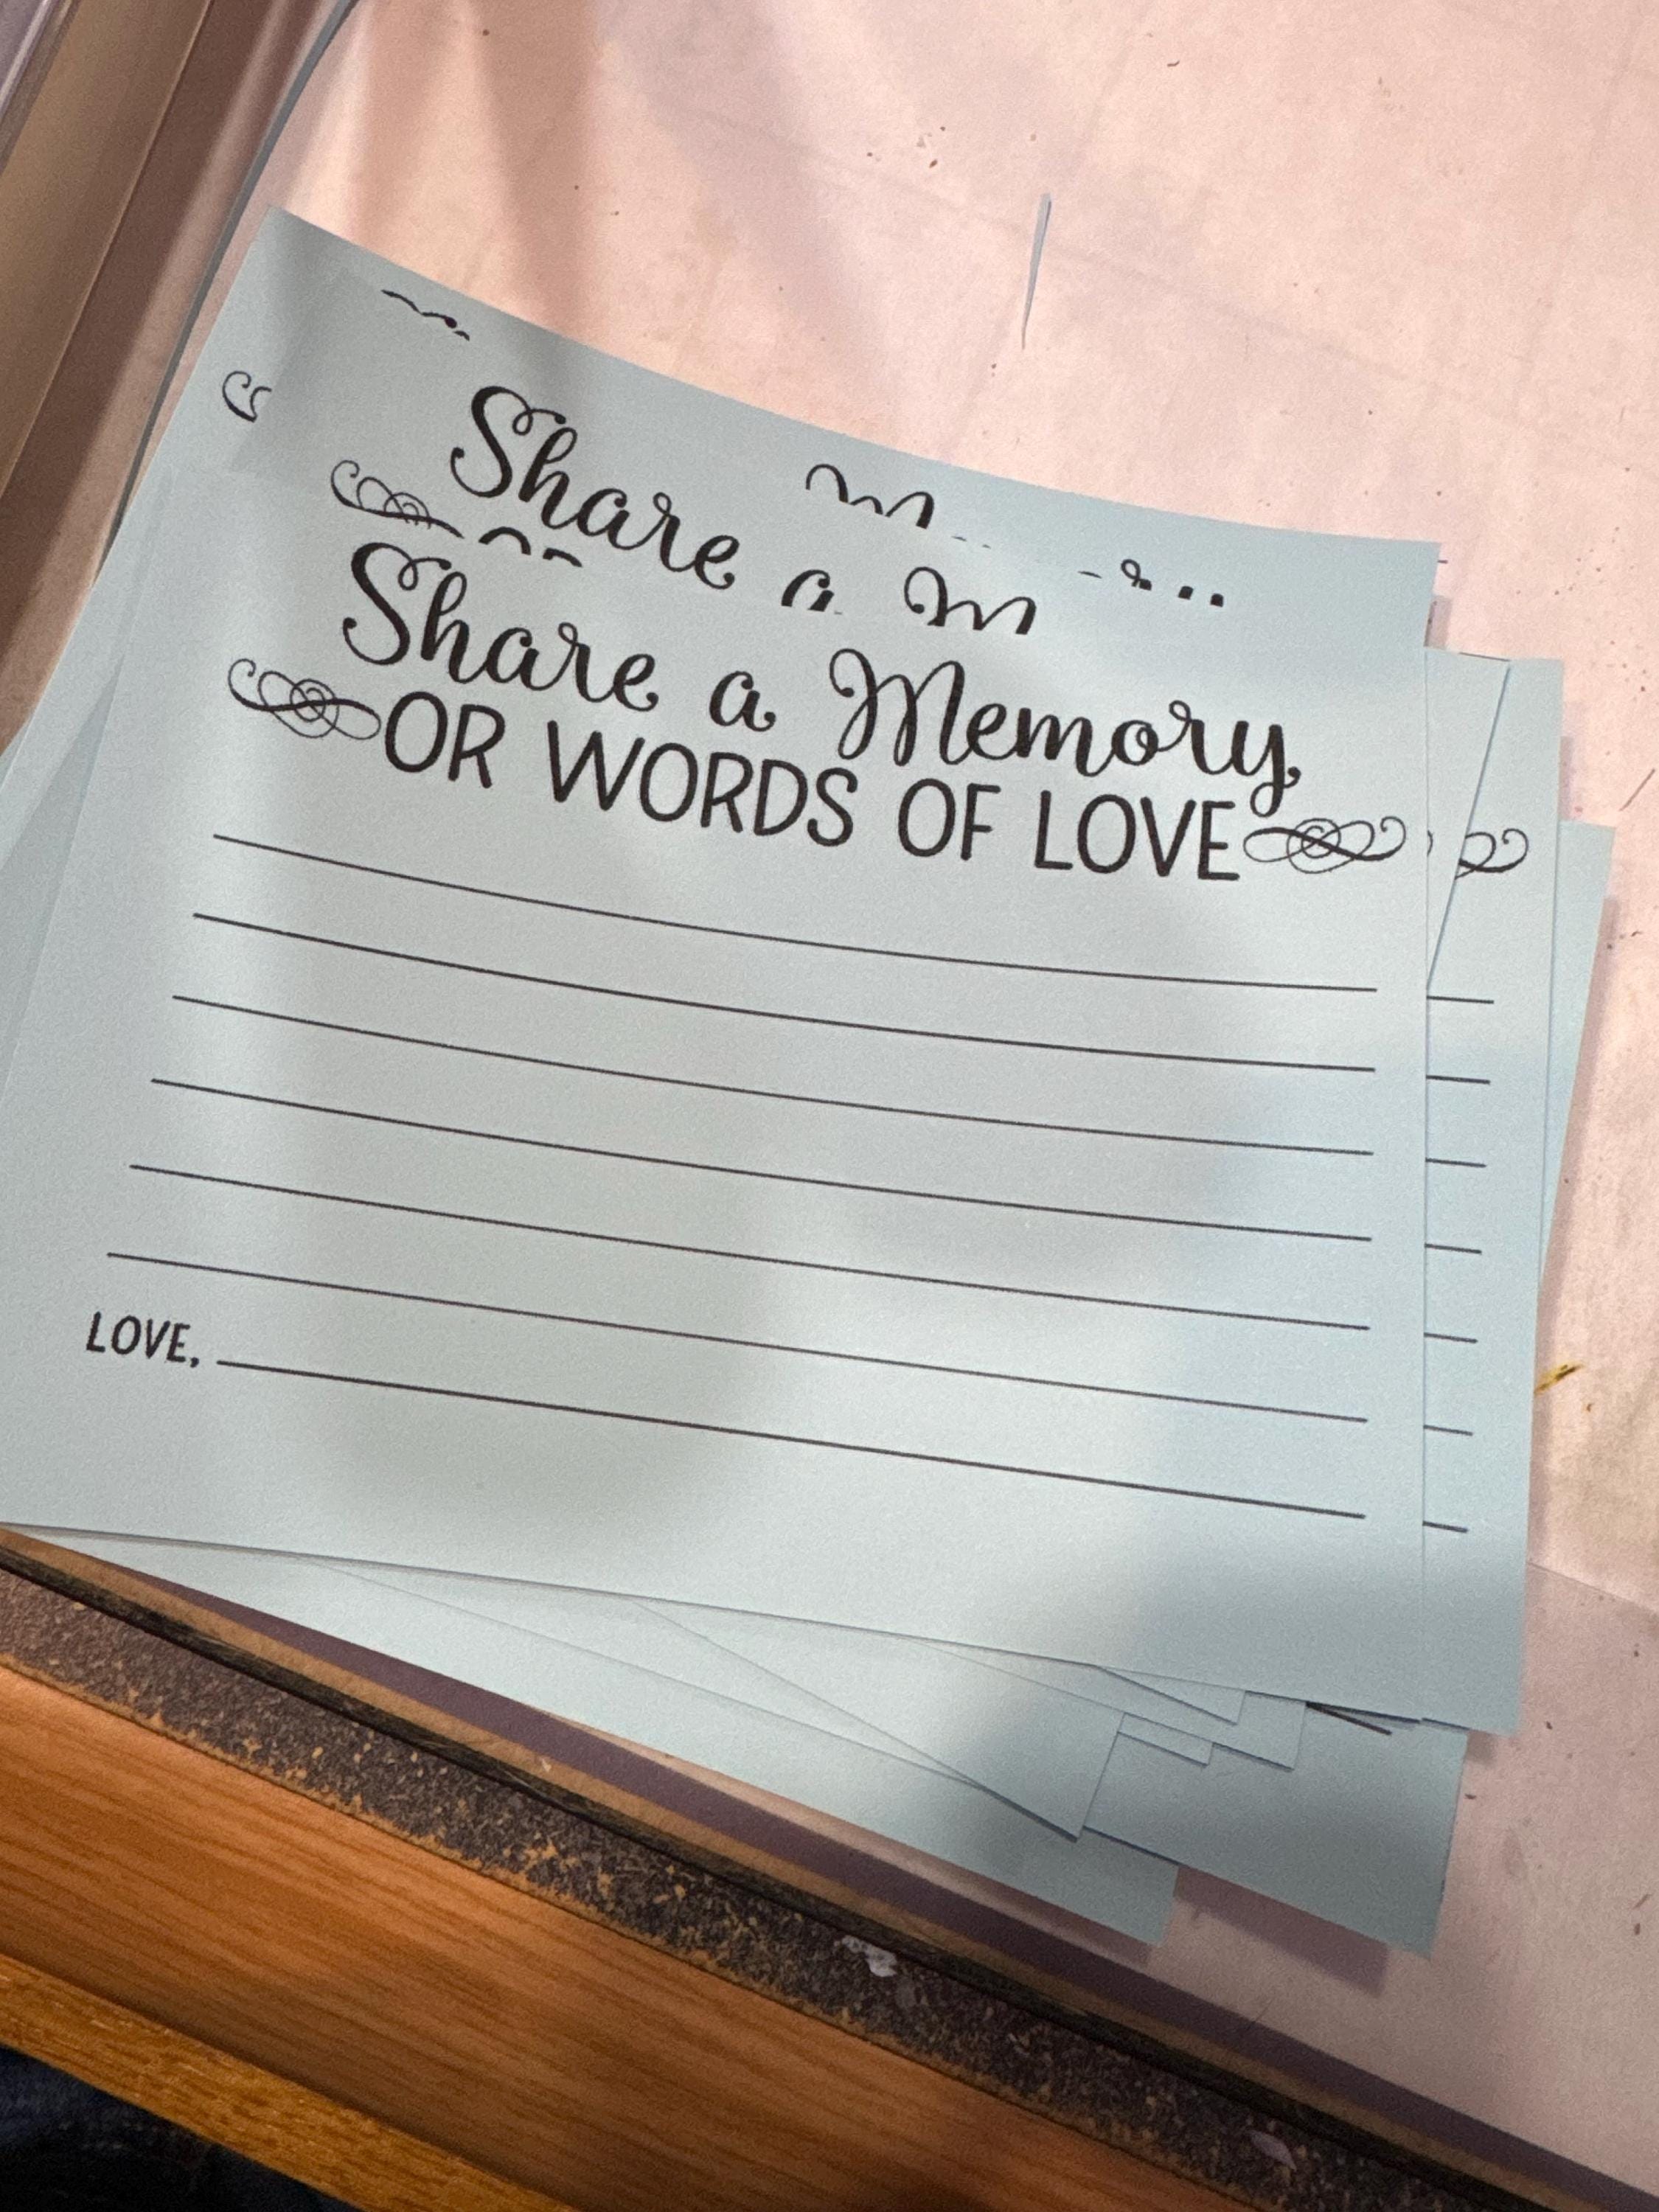 Share a
Share a Memory
OR WORDS OF LOVE
LOVE,